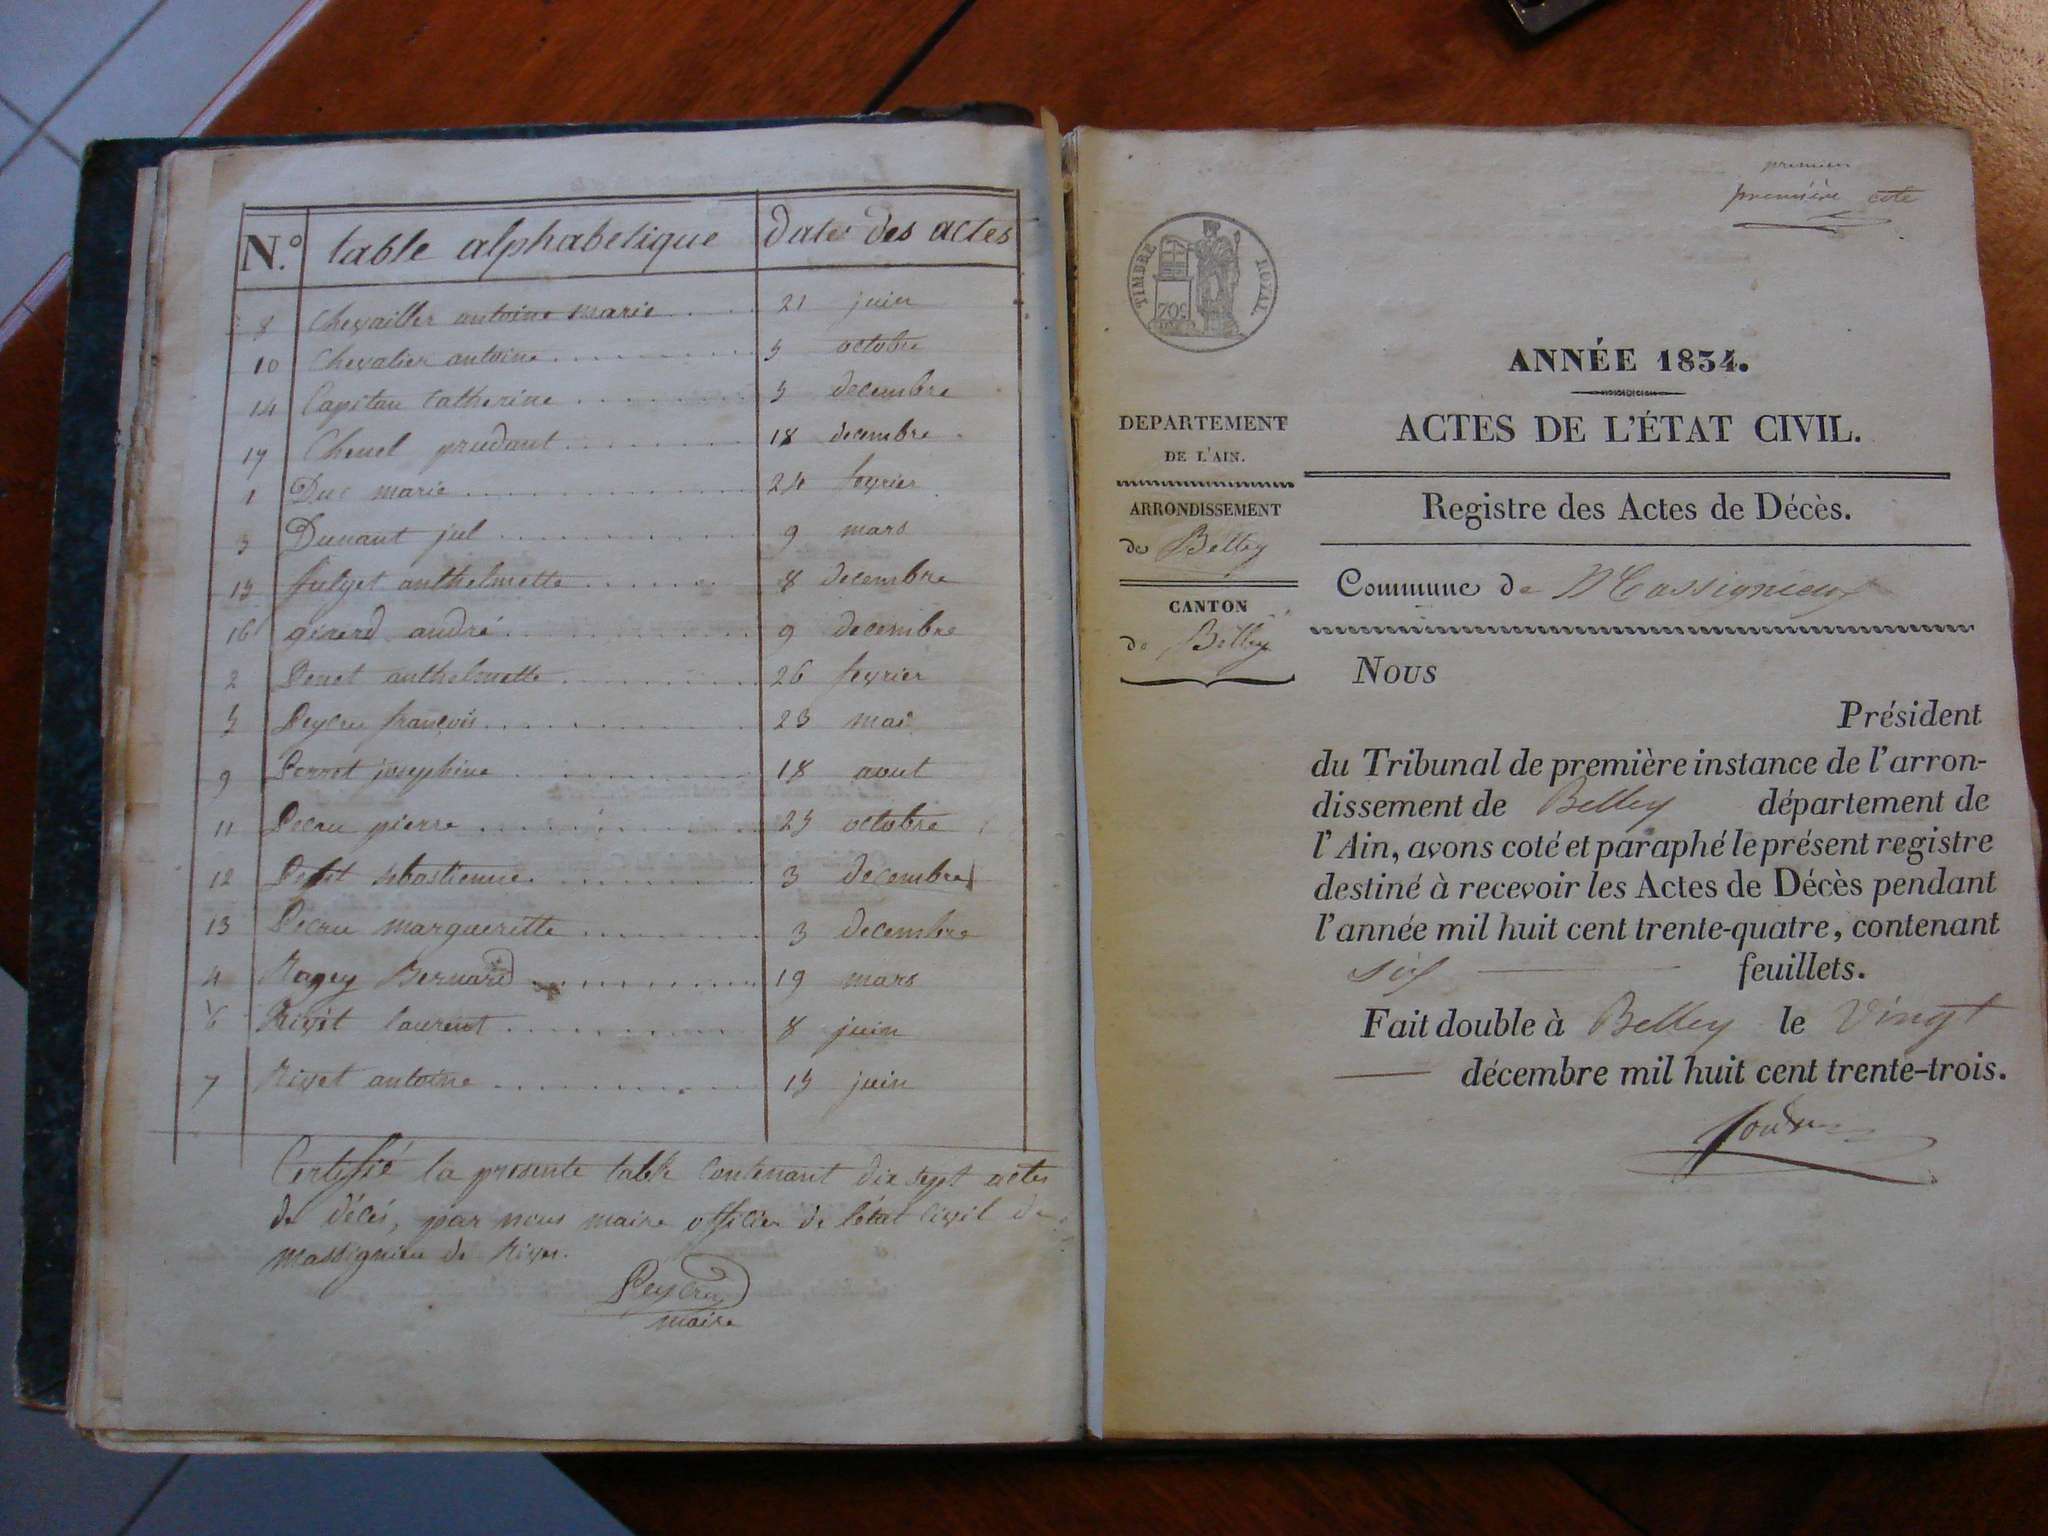 N.º table alphabetique dates des actes
8 Chevallier antoine marie 21 juin
10 Chevalier antoine 5 octobre
14 Capitan Catherine 5 decembre
17 Chenel prudant 18 decembre
1 Duc marie 24 fevrier
3 Dunant jul 9 mars
15 anthelmette 8 decembre
16 gérerd andré 9 decembre
2 anthelmette 26 fevrier
5 Peycru françois 23 mai
9 Perret josephine 18 aout
11 Pecru pierre 25 octobre
12 Petit sebastienne 3 decembre
13 Pecru margueritte 3 decembre
4 Bernard 19 mars
6 Rivet laurent 8 juin
7 Rivet antoine 15 juin
Certifié la presente table contenant dix sept actes
de décés, par nous maire officier de l'état civil de
massignieu de Rives.
Peycru
maire
premier
première cote
TIMBRE ROYAL
70c
ANNÉE 1834.
ACTES DE L'ÉTAT CIVIL.
DEPARTEMENT
DE L'AIN.
ARRONDISSEMENT
de Belley
CANTON
de Belley
Registre des Actes de Décès.
Commune de Massignieux
Nous
Président
du Tribunal de première instance de l'arron-
dissement de Belley département de
l'Ain, avons coté et paraphé le présent registre
destiné à recevoir les Actes de Décès pendant
l'année mil huit cent trente-quatre, contenant
six feuillets.
Fait double à Belley le Vingt
décembre mil huit cent trente-trois.